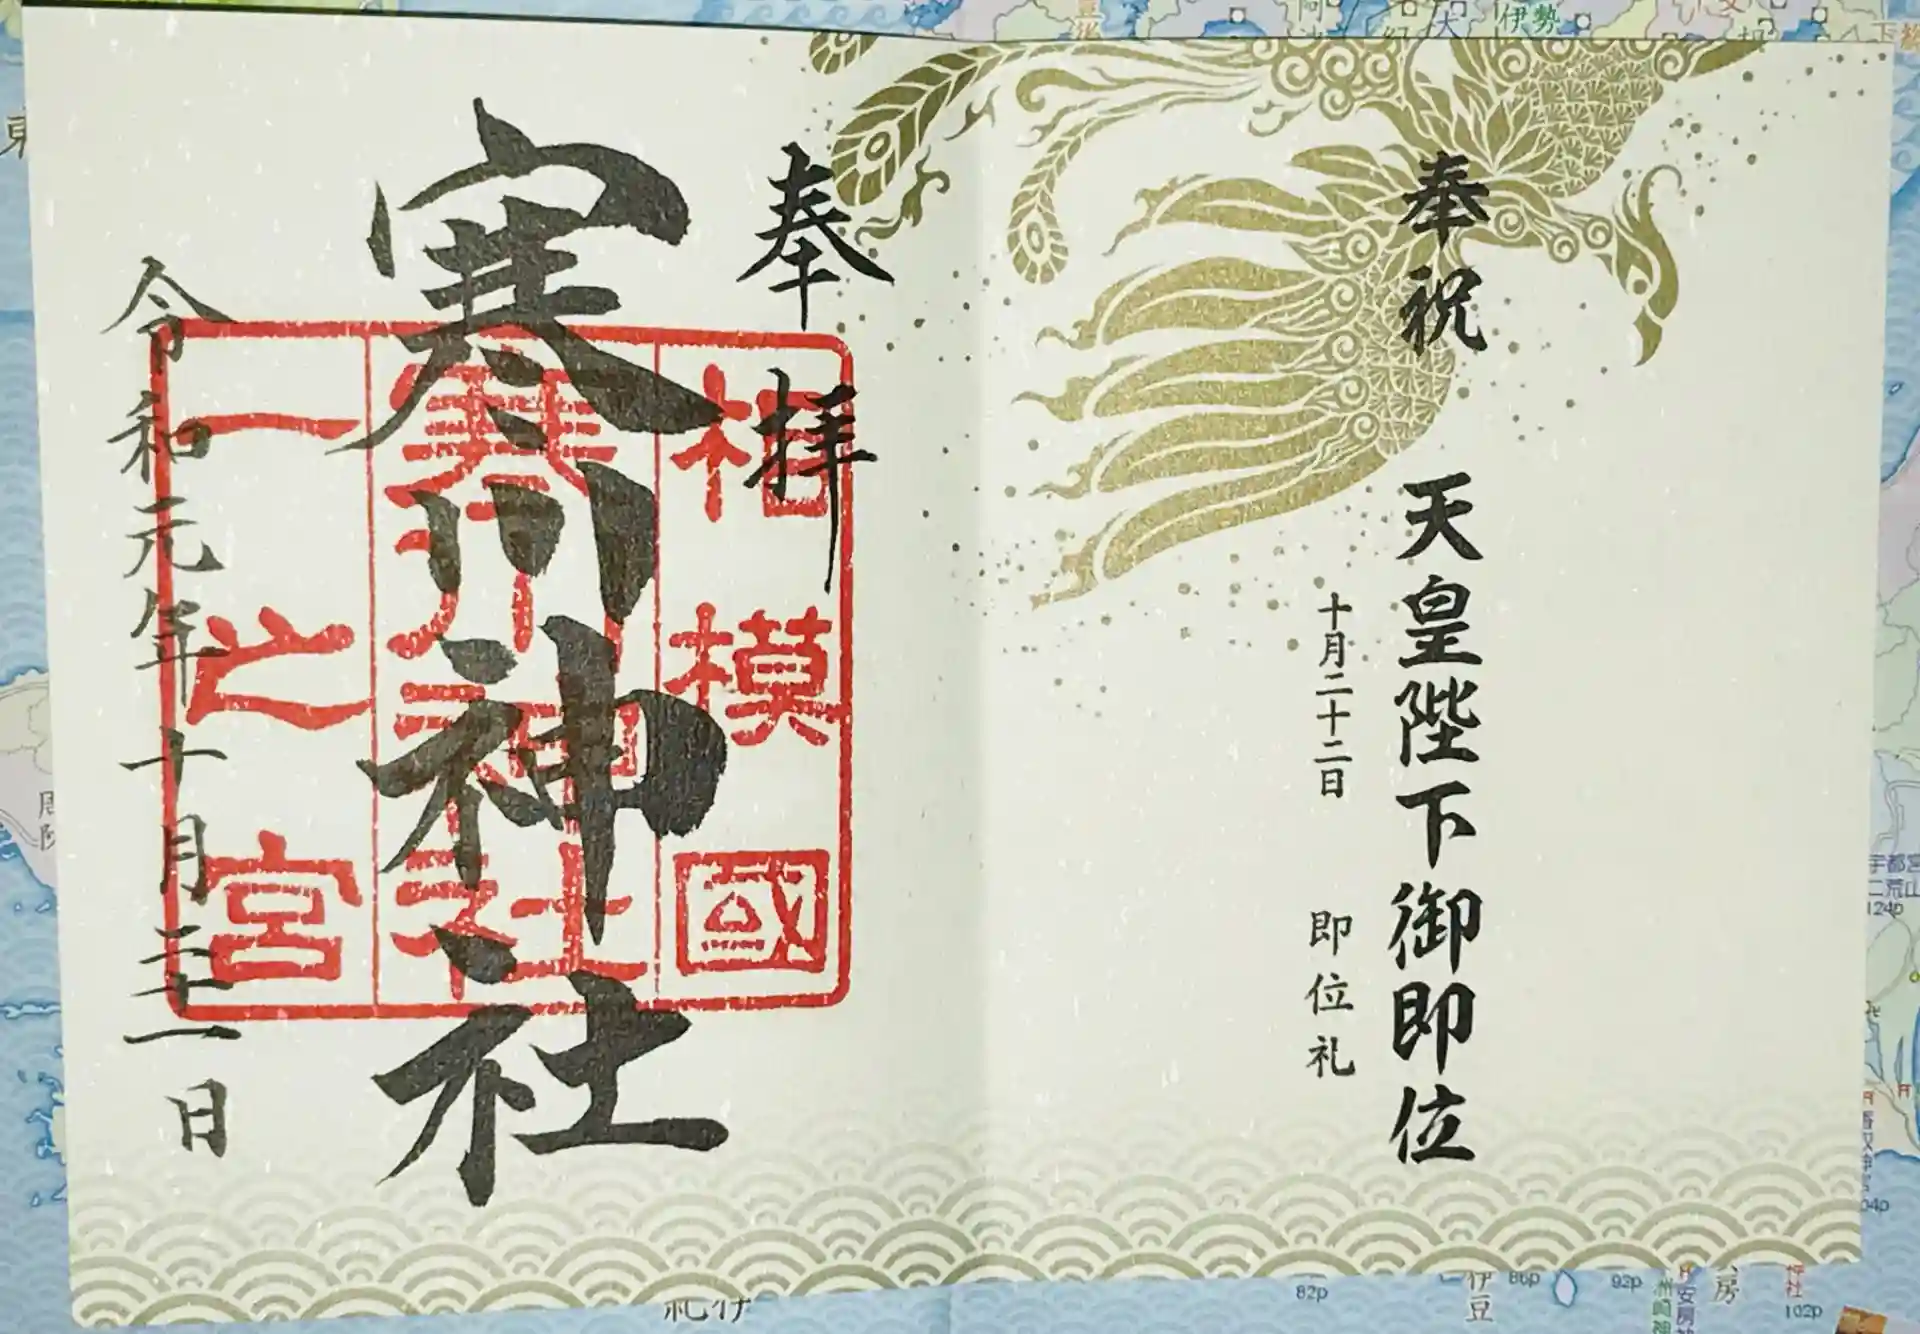 奉祝 天皇陛下御即位
十月二十二日 即位礼
奉拝
寒川神社
相模國
寒川神社
一之宮
令和元年十月二十一日
伊勢
伊豆
82p
86p
92p
102p
124p